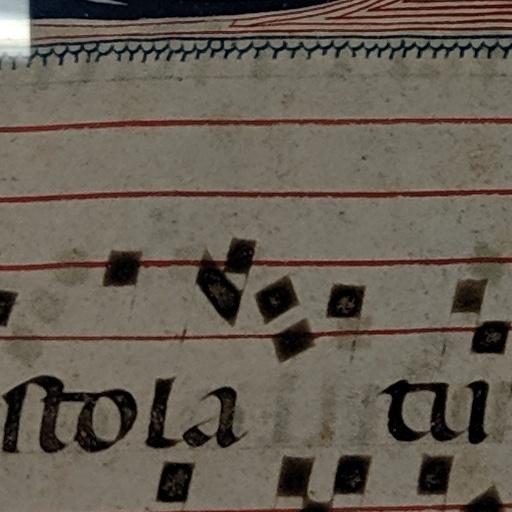 stola tui